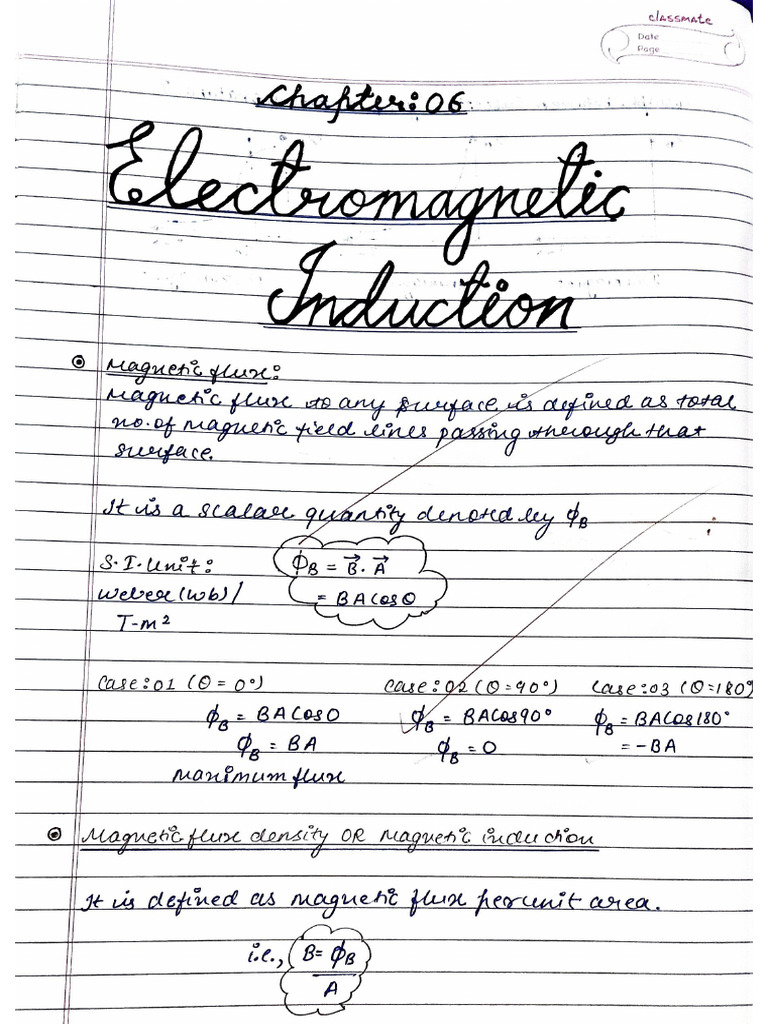 classmate
Date
Page
Chapter: 06
Electromagnetic
Induction
Magnetic flux:
Magnetic flux to any surface is defined as total
no. of magnetic field lines passing through that
surface.
It is a scalar quantity denoted by ϕB
S.I. Unit:
Weber (wb) /
T-m²
ϕB = B⃗ . A⃗
= BA Cosθ
Case: 01 (θ = 0°)
ϕB = BA Cos0
ϕB = BA
maximum flux
Case: 02 (θ = 90°)
ϕB = BA Cos90°
ϕB = 0
Case: 03 (θ = 180°
ϕB = BA Cos180°
= -BA
Magnetic flux density OR Magnetic induction
It is defined as magnetic flux per unit area.
i.e., B = ϕB
A